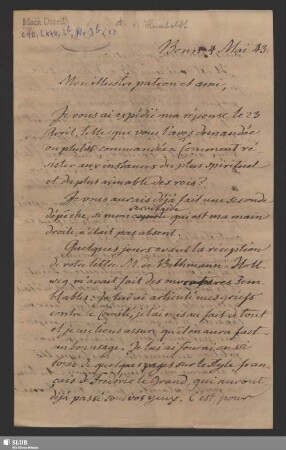 Mscr. Dresd.
à A. de Humboldt
Bonn 4 Mai 43.
Mon illustre patron et ami,
Je vous ai expédié ma réponse le 23
Avril, telle que vous l'avez demandée
ou plutôt commandée. Comment ré-
sister aux instances du plus spirituel
et du plus aimable des rois?
Je vous aurais déjà fait une seconde
dépêche, si mon secrétaire qui est ma main
droite n'était pas absent.
Quelques jours avant la réception
de votre lettre M. de Bethmann-Holl-
weg m'avait fait des ouvertures sem-
blables: Je lui ai articulé mes griefs
contre le Comité, je l'ai mis au fait de tout
et je tiens assuré qu'on aura fait
un bon usage. Je lui ai fourni
de quelques pages sur le style fran-
çais de Frédéric le Grand, qui auront
déjà passé sous vos yeux. C'est pour